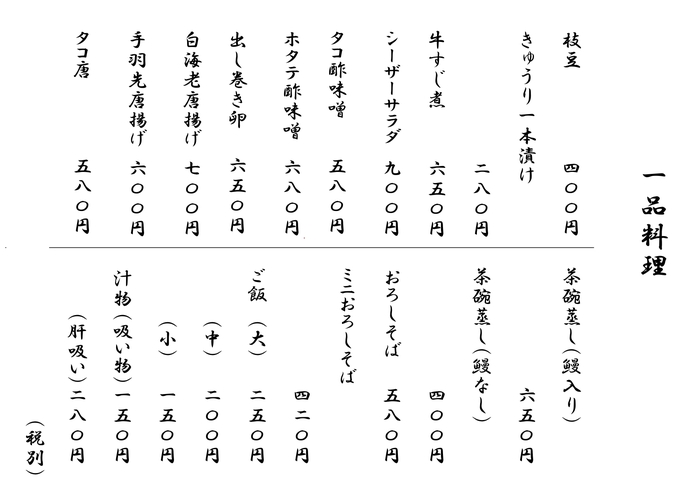 一品料理
枝豆 四〇〇円
きゅうり一本漬け
二八〇円
牛すじ煮 六五〇円
シーザーサラダ 九〇〇円
タコ酢味噌 五八〇円
ホタテ酢味噌 六八〇円
出し巻き卵 六五〇円
白海老唐揚げ 七〇〇円
手羽先唐揚げ 六〇〇円
タコ唐 五八〇円
茶碗蒸し(鰻入り)
六五〇円
茶碗蒸し(鰻なし)
四〇〇円
おろしそば 五八〇円
ミニおろしそば
四二〇円
ご飯(大) 二五〇円
(中) 二〇〇円
(小) 一五〇円
汁物(吸い物)一五〇円
(肝吸い)二八〇円
(税別)